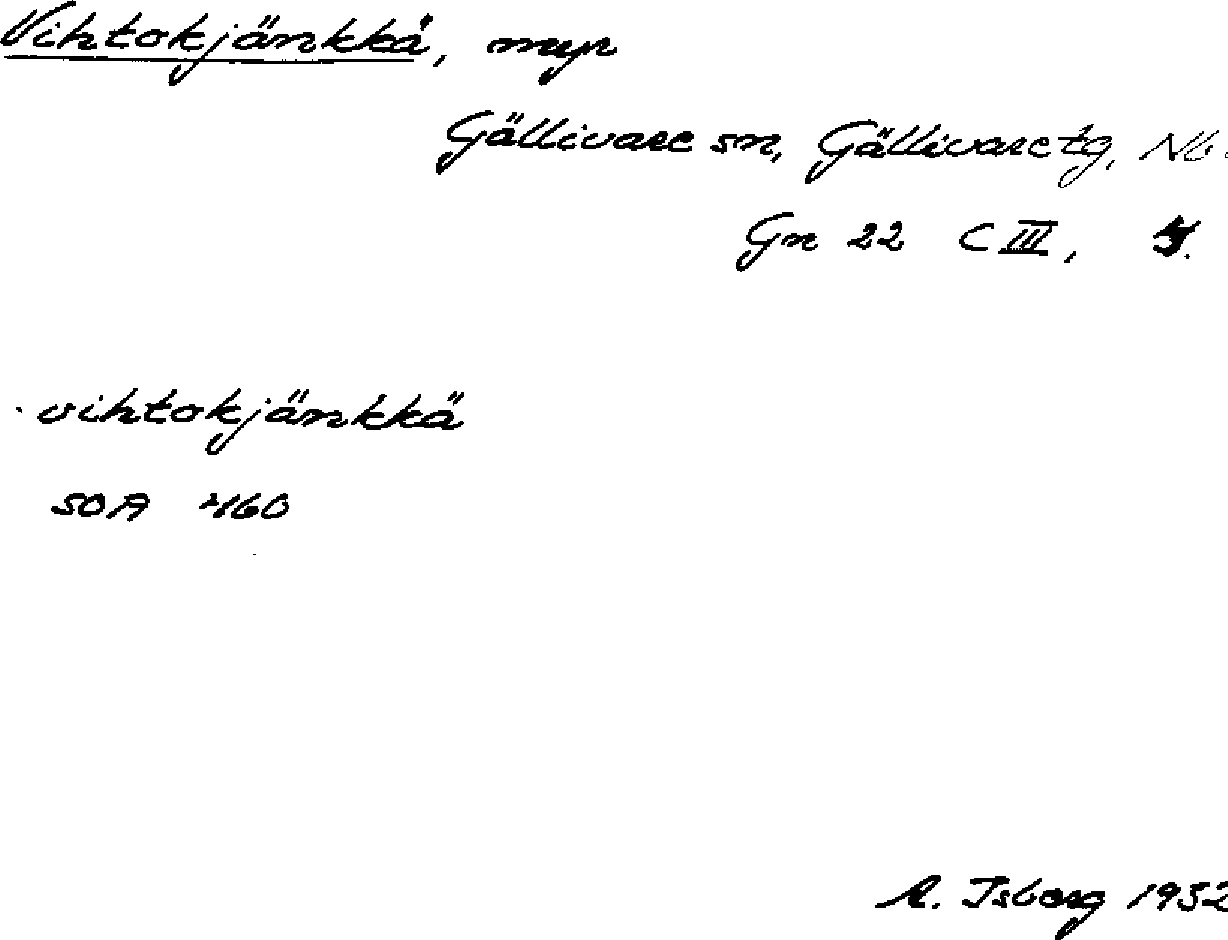 Vihtokjänkkä, myr
Gällivare sn, Gällivare tg, Nb.
Gn 22 C III,
vihtokjänkkä
SOA 460
A. Isborg 1952